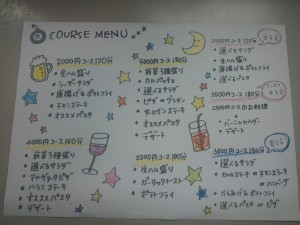 COURSE MENU
2000円コース 120分
・生ハム盛り
・シーザーサラダ
・唐揚げ&ポテトフライ
・チキンステーキ
・オススメパスタ
4000円コース 150分
・前菜3種盛り
・選べるサラダ
・マルゲリタピザ
・ハラミステーキ
・オススメパスタ
・デザート
5000円コース 180分
・前菜5種盛り
・カルパッチョ
・選べるサラダ
・ピザ or グラタン
・サーロインステーキ
・オススメパスタ
・デザート
2000円コース 90分
・生ハム盛り
・ガーリックトースト
・ポテトフライ
2500円コース 120分
・選べるサラダ
・生ハム盛り
・唐揚げ&ポテトフライ
・選べるパスタ
2500円コースのお料理
+
・バーニャカウダ
・デザート
3000円コース
・選べるサラダ
・カットステーキ or チキンステーキ
or ハンバーグ
・からあげ&ポテトフライ
・選べるパスタ or ピザ